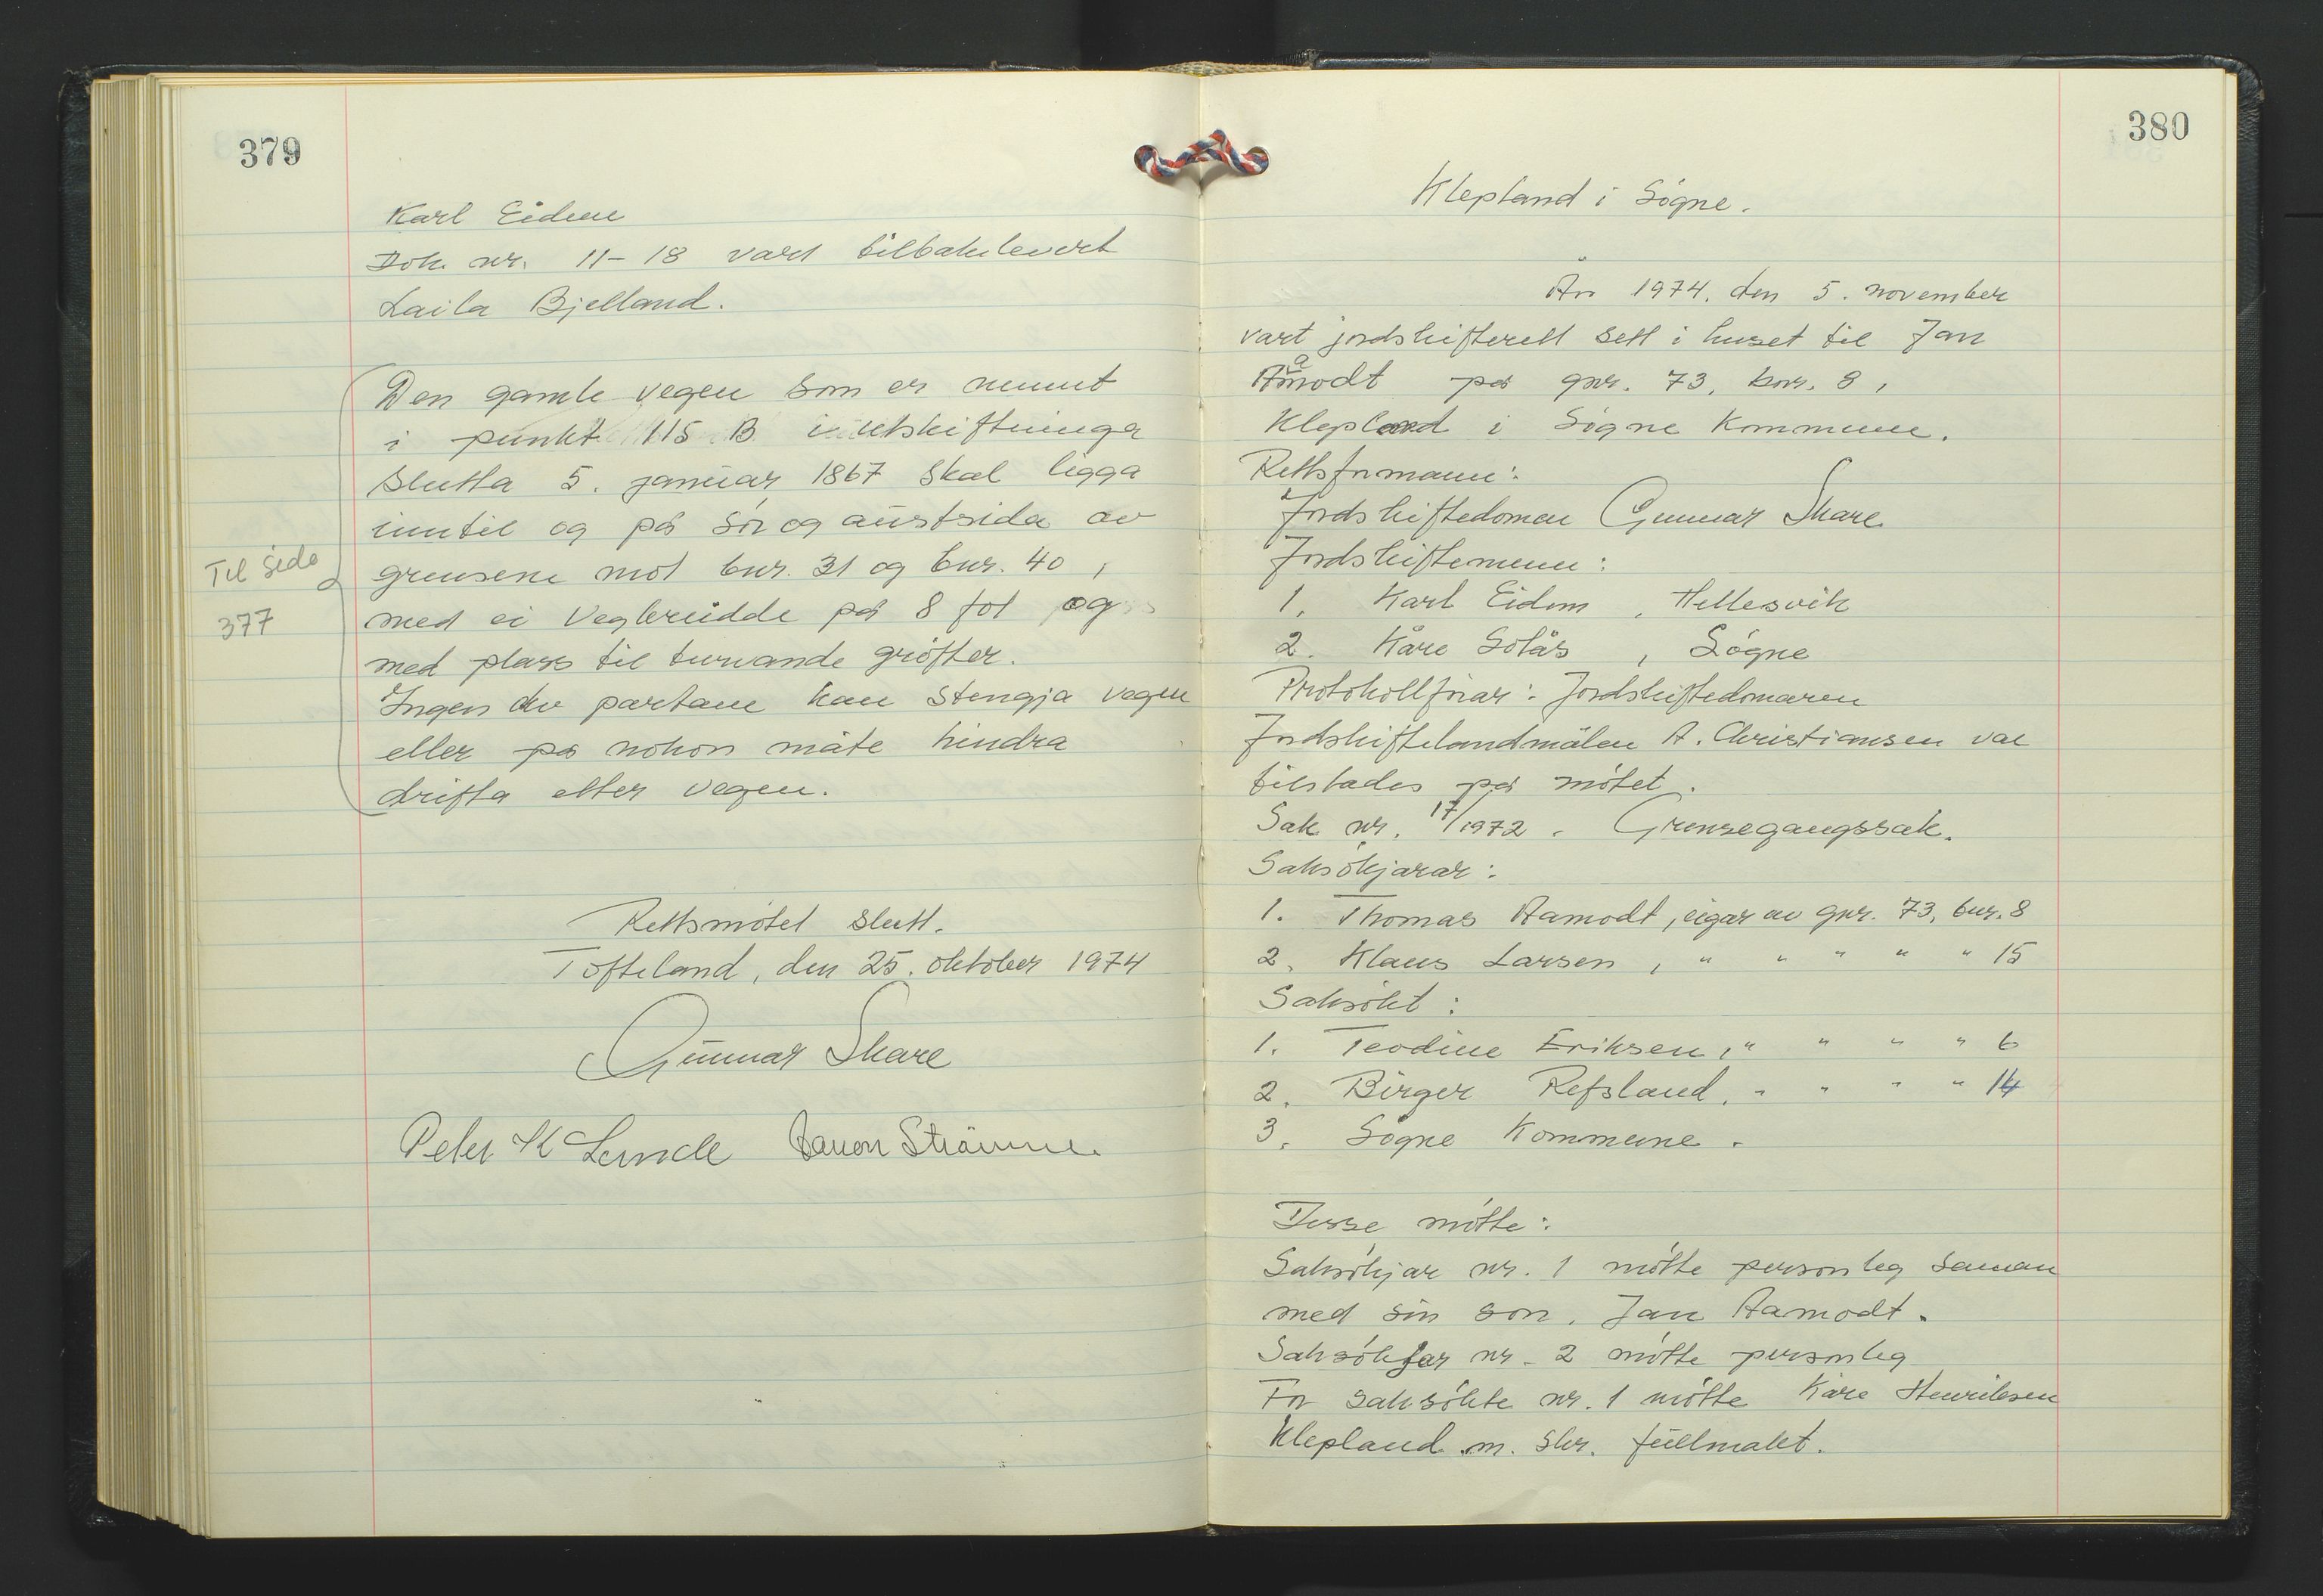 379
Karl Eidem
Dok. nr. 11-18 vart tilbakelevert
Laila Bjelland.
Den gamle vegen som er nemnt
i punkt 115 B i utskiftninga
slutta 5. januar 1867 skal ligga
inntil og på sør og austsida av
grensene mot bnr. 31 og bnr. 40,
med ei vegbreidde på 8 fot og
med plass til turvande grøfter.
Ingen av partane kan stengja vegen
eller på nokon måte hindra
drifta etter vegen.
Til side
377
Rettsmøtet slutt.
Tofteland, den 25. oktober 1974
Gunnar Skare
Peter K Lunde
380
Klepland i Søgne.
År 1974, den 5. november
vart jordskifterett sett i huset til Jan
Aamodt på gnr. 73, bnr. 8,
Klepland i Søgne kommune.
Rettsformann:
Jordskiftedomar Gunnar Skare
Jordskiftemenn:
1. Karl Eidem, Hellesvik
2. Kåre Solås, Søgne
Protokollførar: Jordskiftedomaren
Jordskiftelandmålar A. Christiansen var
tilstades på møtet.
Sak nr. 17/1972. Grensegangssak.
Saksøkjarar:
1. Thomas Aamodt, eigar av gnr. 73, bnr. 8
2. Klaus Larsen, " " " " " 15
Saksøkt:
1. Teodine Eriksen, " " " " 6
2. Birger Refsland, " " " " 14
3. Søgne kommune.
Desse møtte:
Saksøkjar nr. 1 møtte personleg saman
med sin son, Jan Aamodt.
Saksøkjar nr. 2 møtte personleg
For saksøkte nr. 1 møtte Kåre Henriksen
Klepland m. skr. fullmakt.